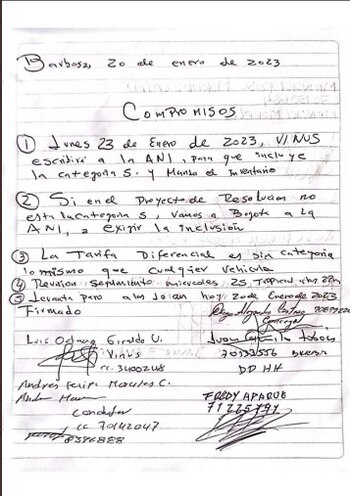 Barbosa, 20 de enero de 2023
COMPROMISOS
① Lunes 23 de Enero de 2023, VINUS
escribirá a la ANI, para que incluye
la categoria S. y Manda el Inventario
② Si en el Proyecto de Resolucion no
esta la categoria S, vamos a Bogota a la
ANI, a exigir la inclusión
③ La Tarifa Diferencial es sin categoria
lo mismo que cualquier vehiculo
④ Reunion Seguimiento miercoles, 25,
⑤ Levanta paro a las hoy, 20 de Enero de 2023
Firmado
Concejal
Luis Octavio Giraldo U.
Vinus
cc. 3400248
Juan Camilo
70133556
DD HH
Andres Felipe Morales C.
Conductor
cc 70142047
8396888
FREDY APARICIO
71225791